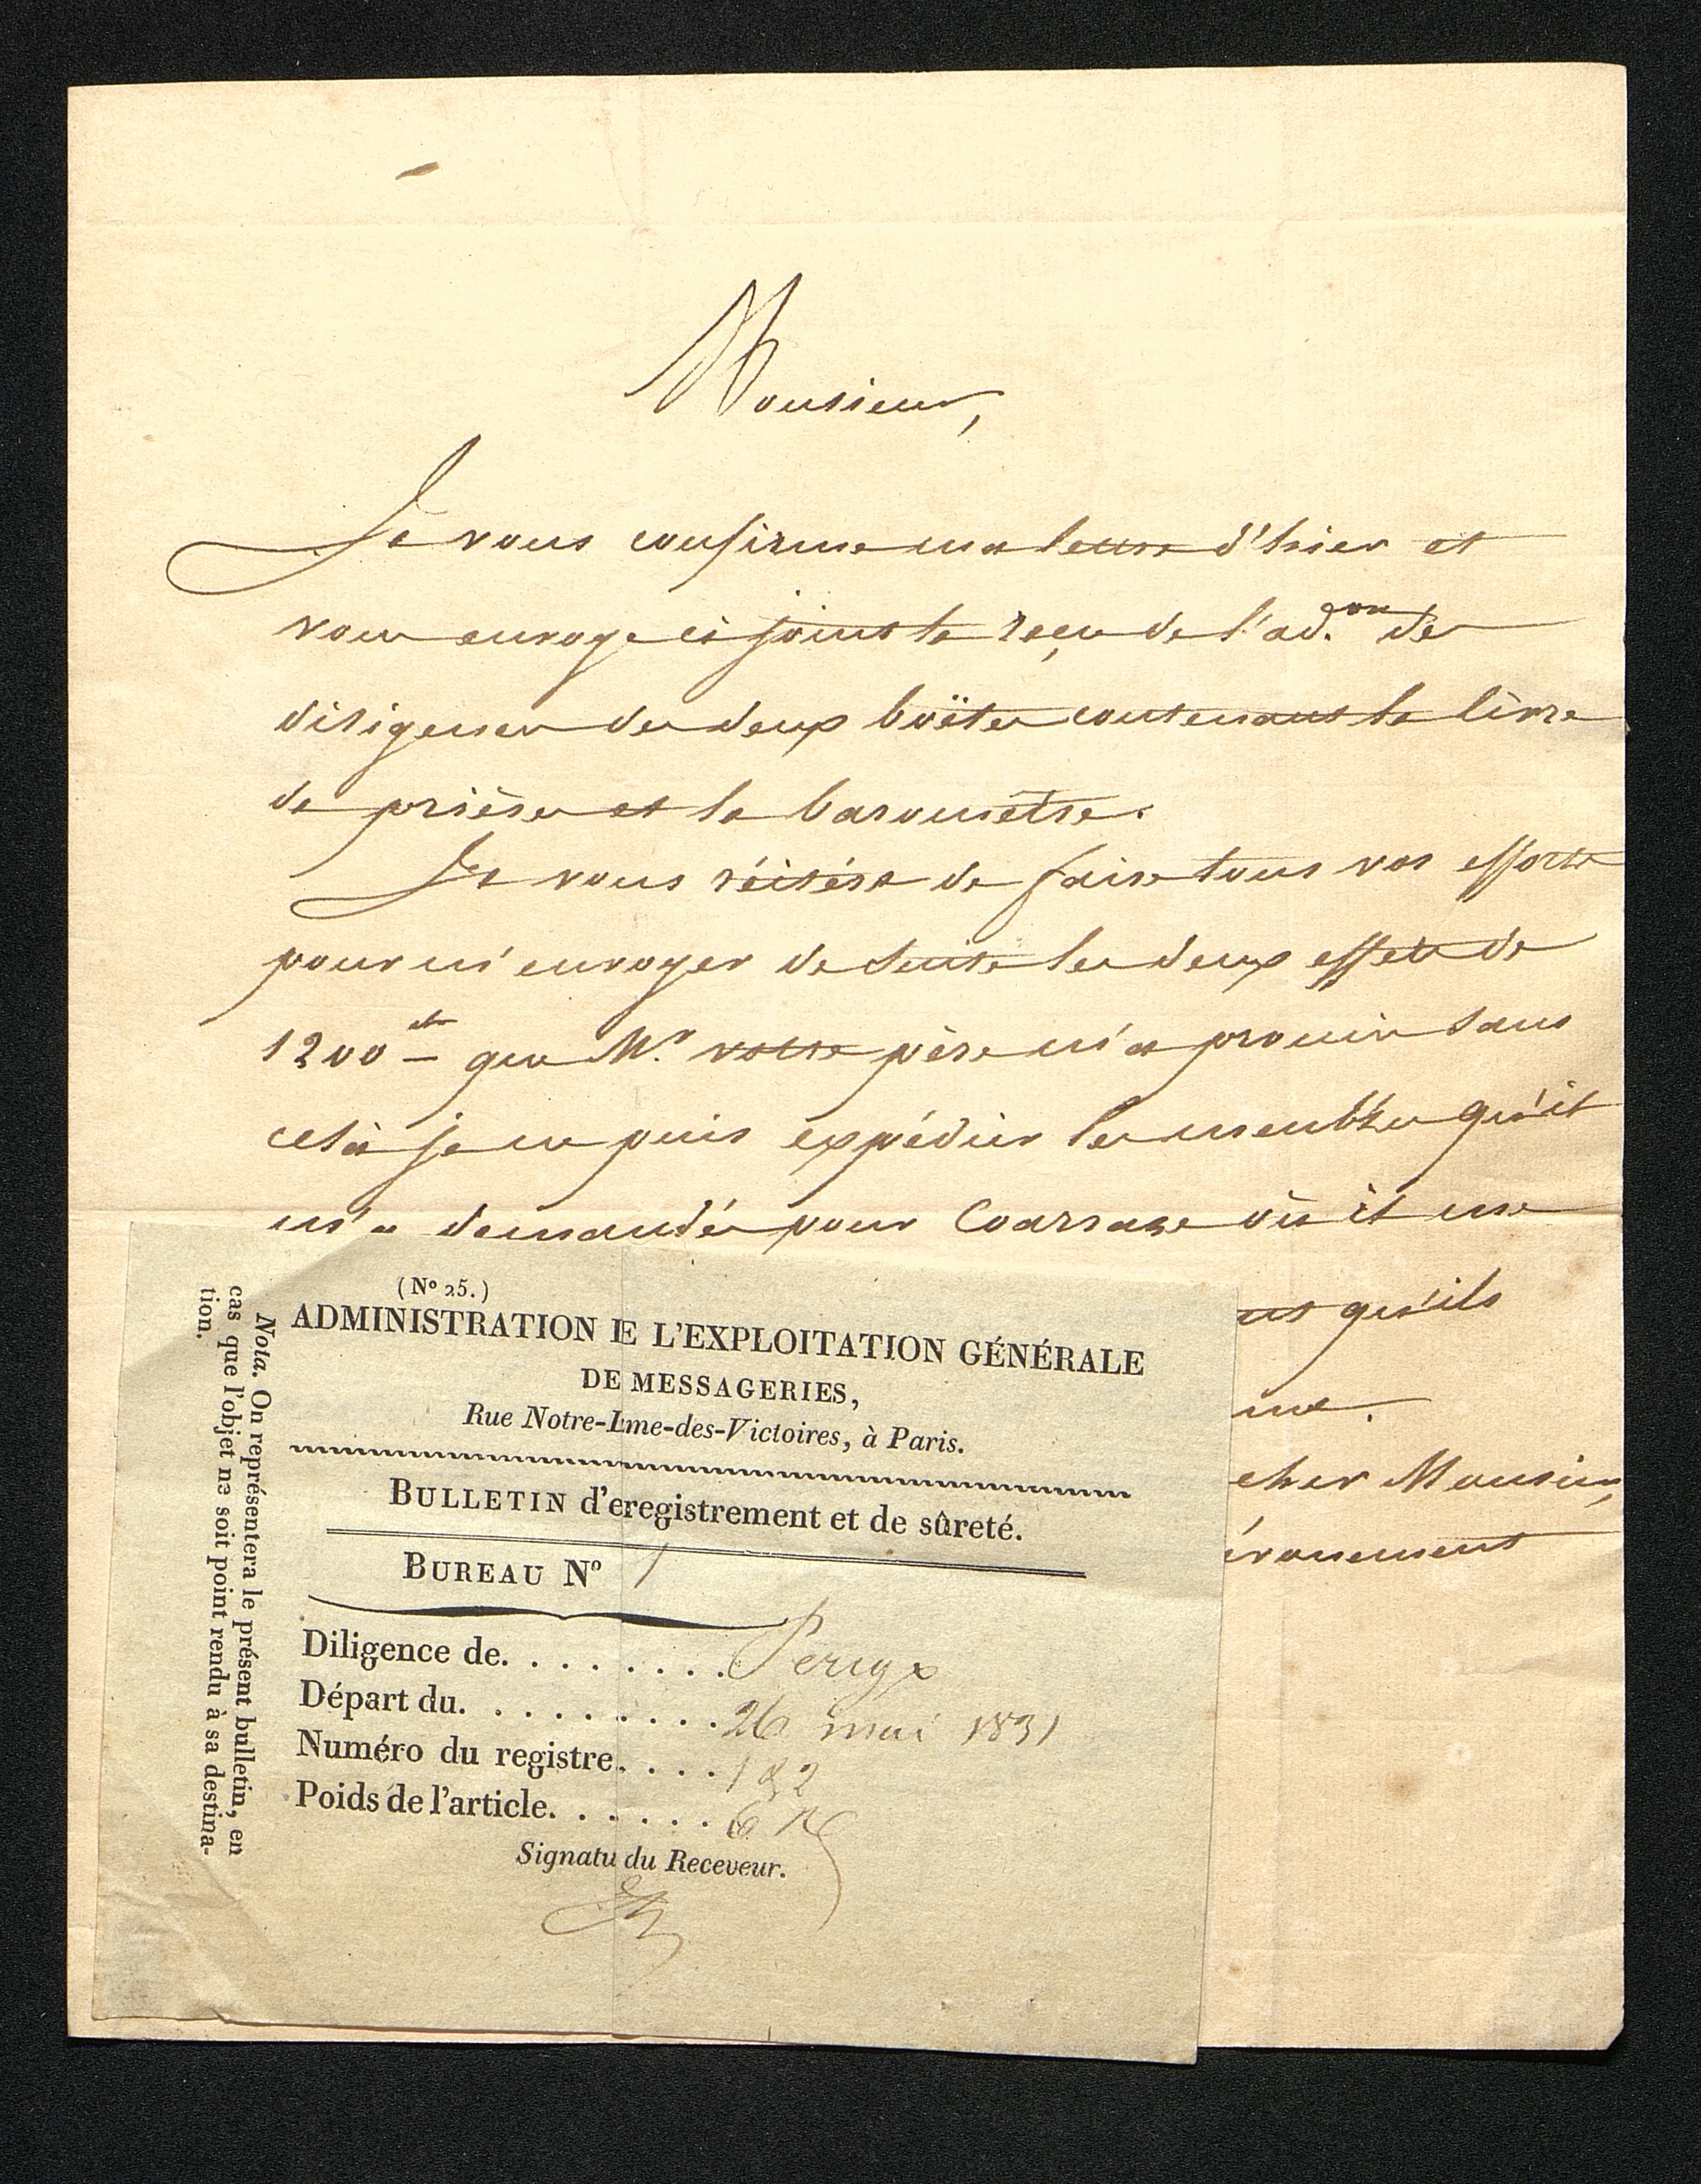 Monsieur,
Je vous confirme ma lettre d'hier et
vous envoye ci joint le reçu de l'ad.on des
diligences des deux boëtes contenant le livre
de prières et le barometre.
Je vous réitére de faire tous vos efforts
pour m'envoyer de suite les deux effets de
1200 que Mr. votre père m'a promis sans
celà je ne puis expédier les meubles qu'il
m'a demandés pour Coarraze où il me
qu'ils
cher Monsieur,
(No 25.)
ADMINISTRATION DE L'EXPLOITATION GÉNÉRALE
DE MESSAGERIES,
Rue Notre-Dme-des-Victoires, à Paris.
BULLETIN d'eregistrement et de sûreté.
BUREAU No 1
Diligence de. . . . . . . . Perigx
Départ du. . . . . . . . . 26 mai 1831
Numéro du registre. . . . . 1 & 2
Poids de l'article. . . . . . . 6 K
Signatu du Receveur.
Nota. On représentera le présent bulletin, en
cas que l'objet ne soit point rendu à sa destina-
tion.